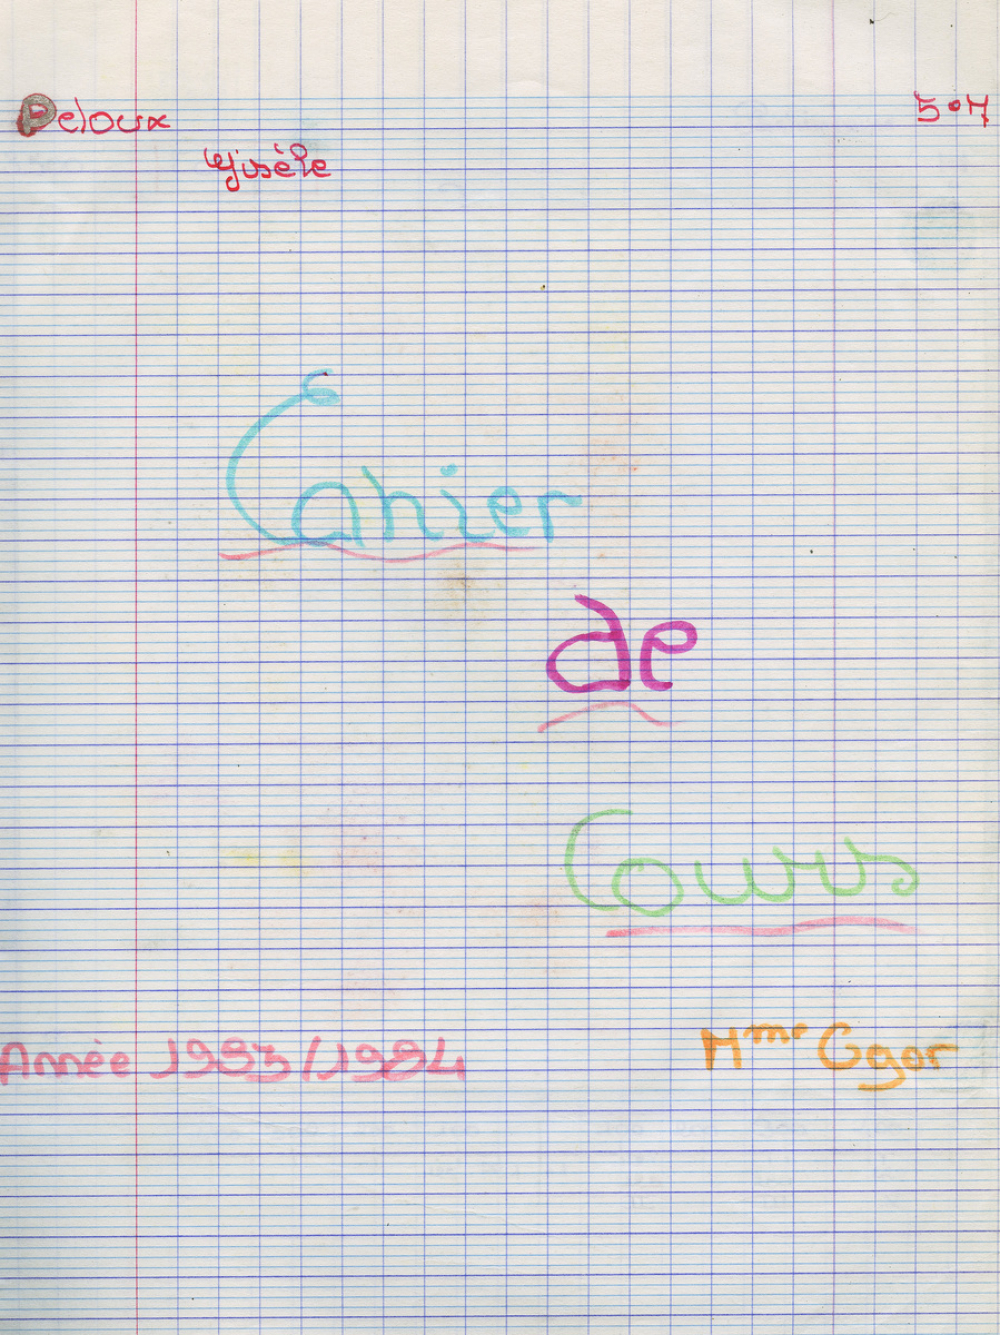 Peloux
Gisèle
5°7
Cahier
de
Cours
Année 1983/1984
Mme